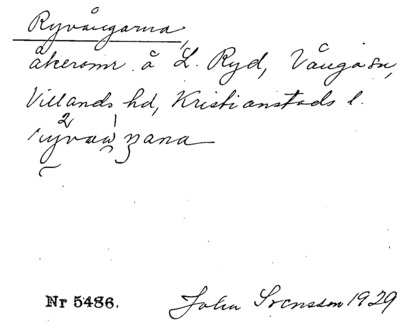 Ryvångarna,
åkeromr. å L. Ryd, Vånga sn,
Villands hd, Kristianstads l.
Nr 5486. John Svensson 1929